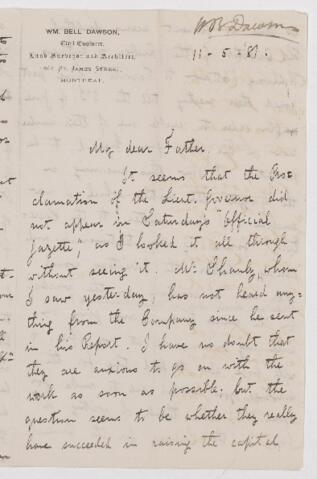 WM. BELL DAWSON,
Civil Engineer,
Land Surveyor and Architect,
ST. JAMES STREET,
MONTREAL.
W B Dawson
11-5-81.
My dear Father
It seems that the Pro-
clamation of the Lieut. Governor did
not appear in Saturday's "Official
Gazette", as I looked it all through
without seeing it. Mr. Shanly, whom
I saw yesterday, has not heard any-
thing from the Company since he sent
in his Report. I have no doubt that
they are anxious to go on with the
work as soon as possible; but the
question seems to be whether they really
have succeeded in raising the capital